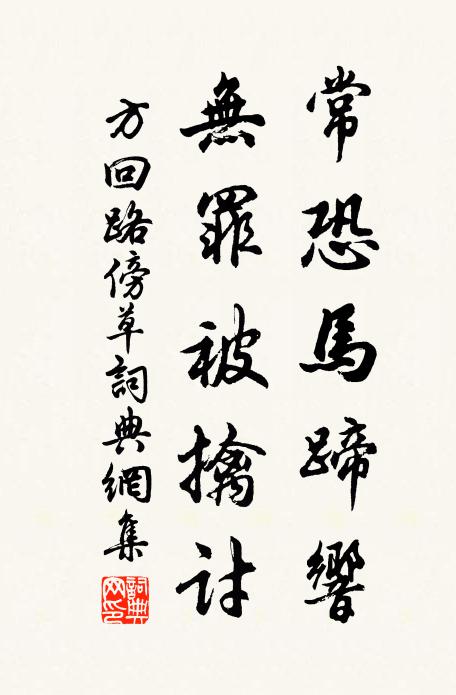 常恐馬蹄響
無罪被擒討
方回路傍草詞典網集
詞典網印